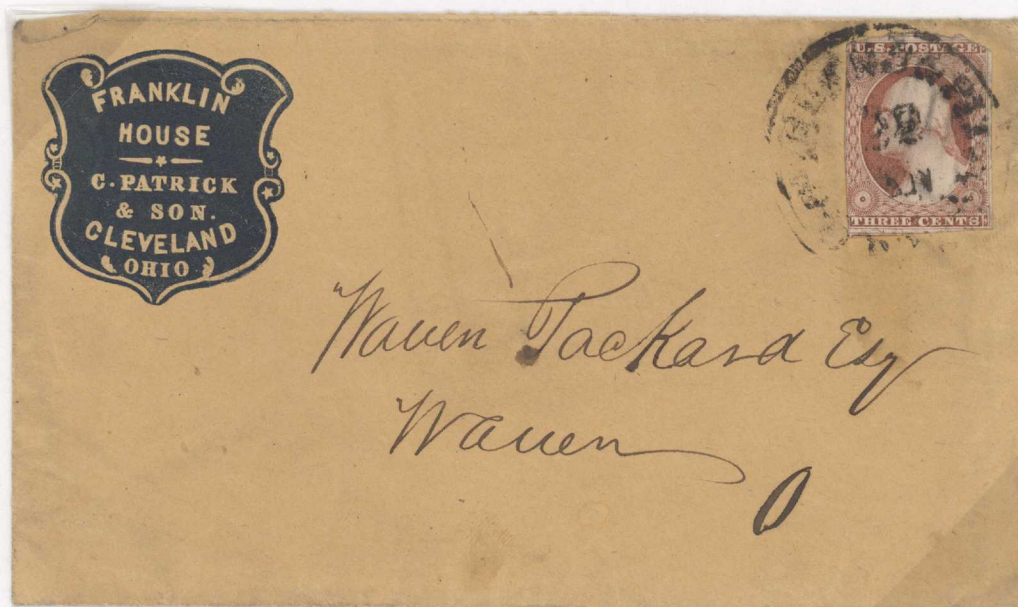 FRANKLIN
HOUSE
C. PATRICK
& SON.
CLEVELAND
OHIO
U.S. POSTAGE
THREE CENTS
Warren Packard Esq
Warren
O